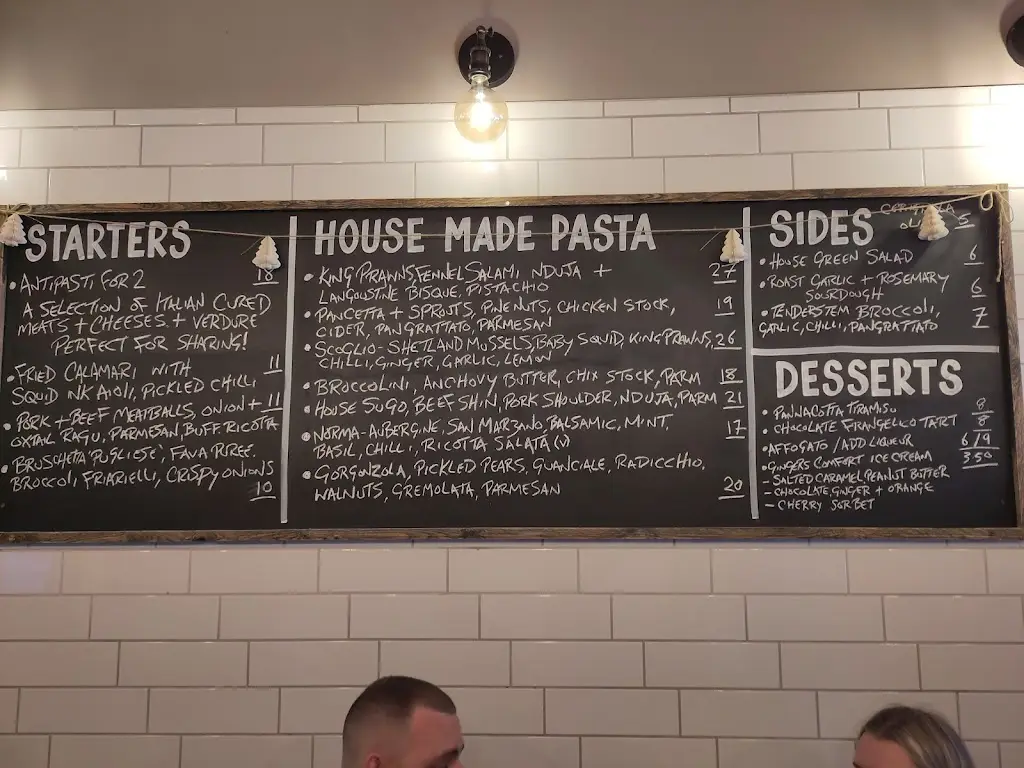 STARTERS
• ANTIPASTI FOR 2 18
A SELECTION OF ITALIAN CURED
MEATS + CHEESES + VERDURE
PERFECT FOR SHARING!
• FRIED CALAMARI WITH 11
SQUID INK AIOLI, PICKLED CHILLI
• PORK + BEEF MEATBALLS, ONION + 11
OXTAIL RAGU, PARMESAN, BUFF. RICOTTA
• BRUSCHETA 'PUGLIESE', FAVA PUREE.
BROCCOLI, FRIARIELLI, CRISPY ONIONS
10
HOUSE MADE PASTA
• KING PRAWNS, FENNEL SALAMI, NDUJA + 27
LANGOUSTINE BISQUE, PISTACHIO
• PANCETTA + SPROUTS, PINENUTS, CHICKEN STOCK, 19
CIDER, PANGRATTATO, PARMESAN
• SCOGLIO - SHETLAND MUSSELS, BABY SQUID, KING PRAWNS, 26
CHILLI, GINGER, GARLIC, LEMON
• BROCCOLINI, ANCHOVY BUTTER, CHIX STOCK, PARM 18
• HOUSE SUGO, BEEF SHIN, PORK SHOULDER, NDUJA, PARM 21
• NORMA - AUBERGINE, SAN MARZANO, BALSAMIC, MINT, 17
BASIL, CHILLI, RICOTTA SALATA (V)
• GORGONZOLA, PICKLED PEARS, GUANCIALE, RADICCHIO,
WALNUTS, GREMOLATA, PARMESAN 20
SIDES
5
• HOUSE GREEN SALAD 6
• ROAST GARLIC + ROSEMARY 6
SOURDOUGH
• TENDERSTEM BROCCOLI, 7
GARLIC, CHILLI, PANGRATTATO
DESSERTS
• PANNACOTTA TIRAMISU 8
• CHOCOLATE FRANGELLCO TART 8
• AFFOGATO / ADD LIQUEUR 6/9
• GINGERS COMFORT ICE CREAM 3.50
- SALTED CARAMEL, PEANUT BUTTER
- CHOCOLATE, GINGER + ORANGE
- CHERRY SORBET